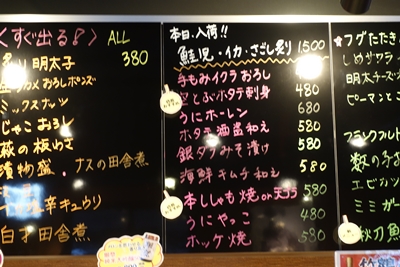 すぐ出る♪ ALL
炙り明太子 380
ワカメおろしポンズ
ミックスナッツ
じゃこおろし
萩の板わさ
漬物盛. ナスの田舎煮
辛キュウリ
田舎煮
本日入荷!!
鮭児・イカ・さごし炙り 1,500
手もみイクラおろし
とぶホタテ刺身 480
うにホーレン 680
ホタテ酒盗和え 580
銀ダラみそ漬け 580
海鮮キムチ和え 580
本ししゃも焼or天プラ 580
うにやっこ 480
ホッケ焼 580
フグたたき
しめサバ
明太チーズ
ピーマンと
フランクフルト
数の子
エビカツ
ミミガー
秋刀魚